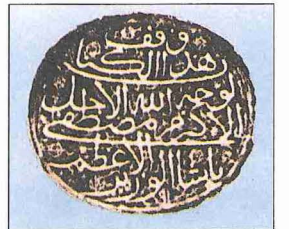 وقف
هذا الكتاب
لوجه الله الاجل
الاكرم مصطفى
باشا الوزير الاعظم